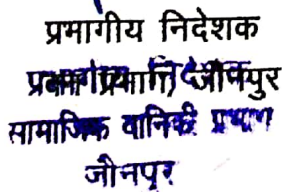 प्रभागीय निदेशक
जौनपुर
सामाजिक वानिकी प्रभाग
जौनपुर